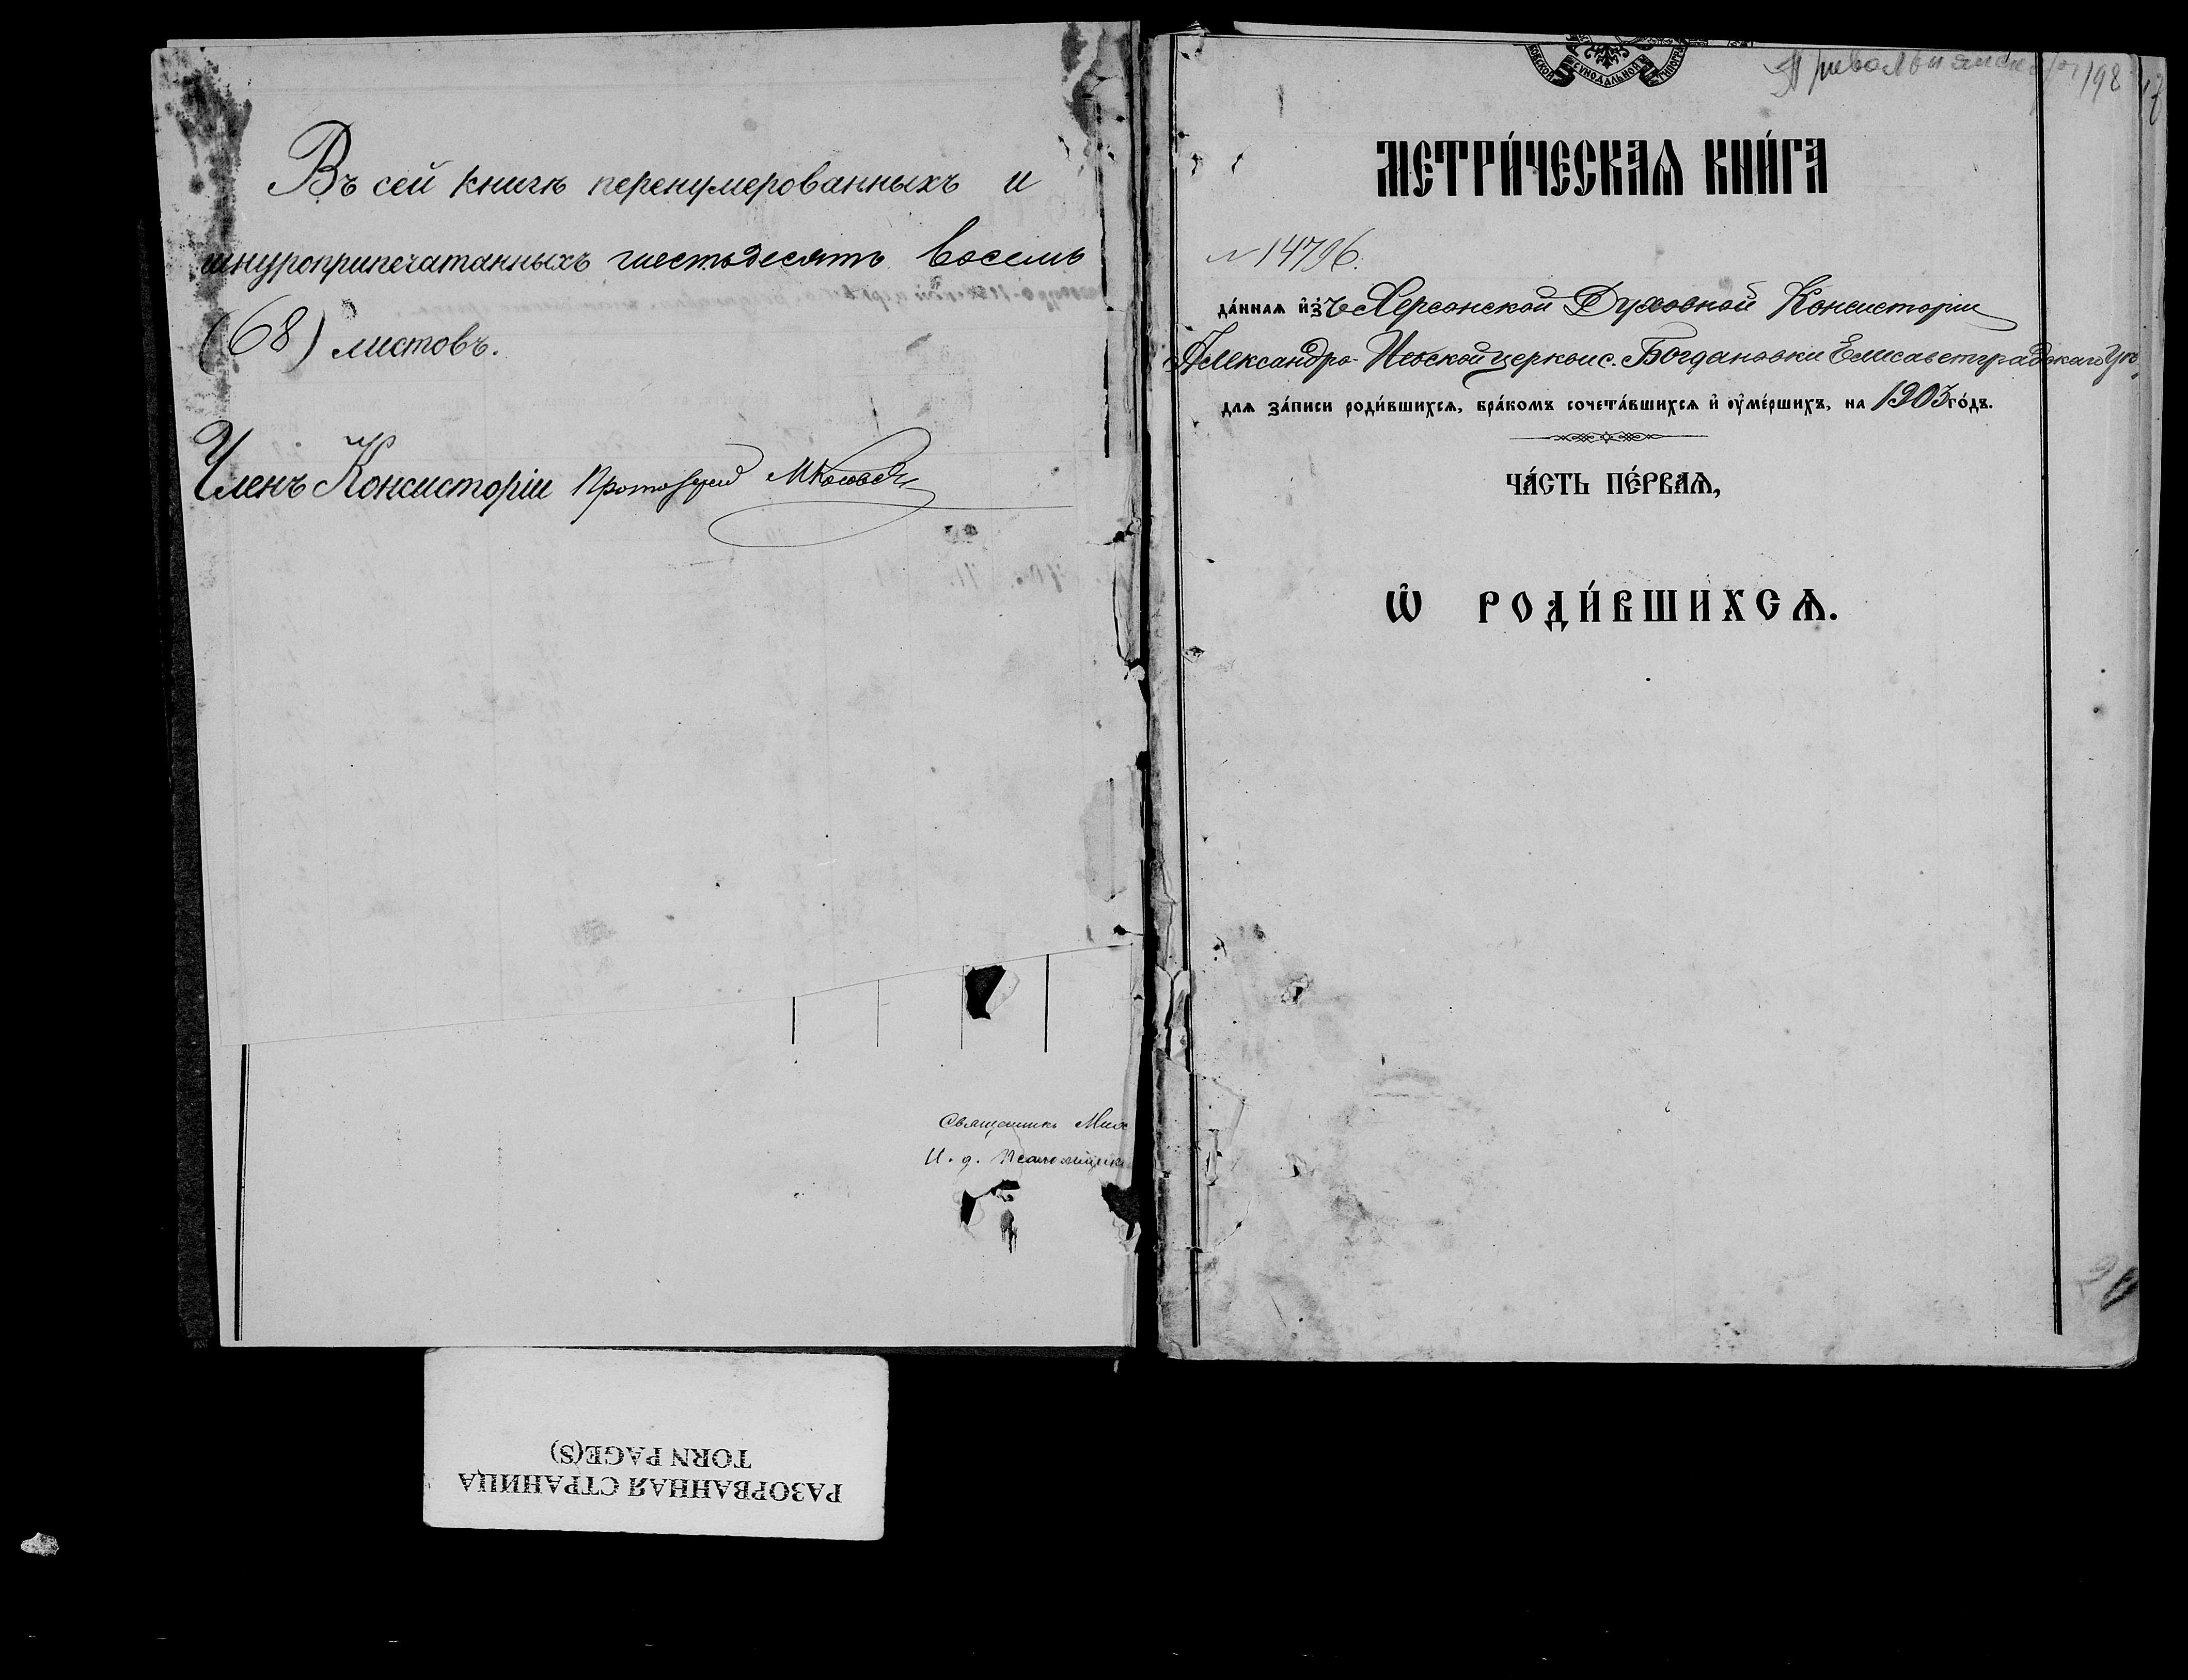 Въ сей книгѣ перенумерованныхъ и
шнуроприпечатанныхъ шестьдесятъ восемь
(68) листовъ.
Членъ Консисторіи Протоіерей
Священникъ Мих
И. д. Псаломщика
РАЗОРВАННАЯ СТРАНИЦА
TORN PAGE(S)
СѴНОДАЛЬНОЙ
198
МЕТРИ́ЧЕСКАѦ КНИ́ГА
№ 14796.
да́ннаѧ и҆зъ Херсонской Духовной Консисторіи
Александро-Невской церкви с. Богдановки Елисаветградскаго уѣ.
для за́писи роди́вшихсѧ, бра́комъ сочета́вшихсѧ и҆ ᲂу҆ме́ршихъ, на 1903 го́дъ.
ЧА́СТЬ ПЕ́РВАѦ,
Ѡ҆ РОДИ́ВШИХСѦ.